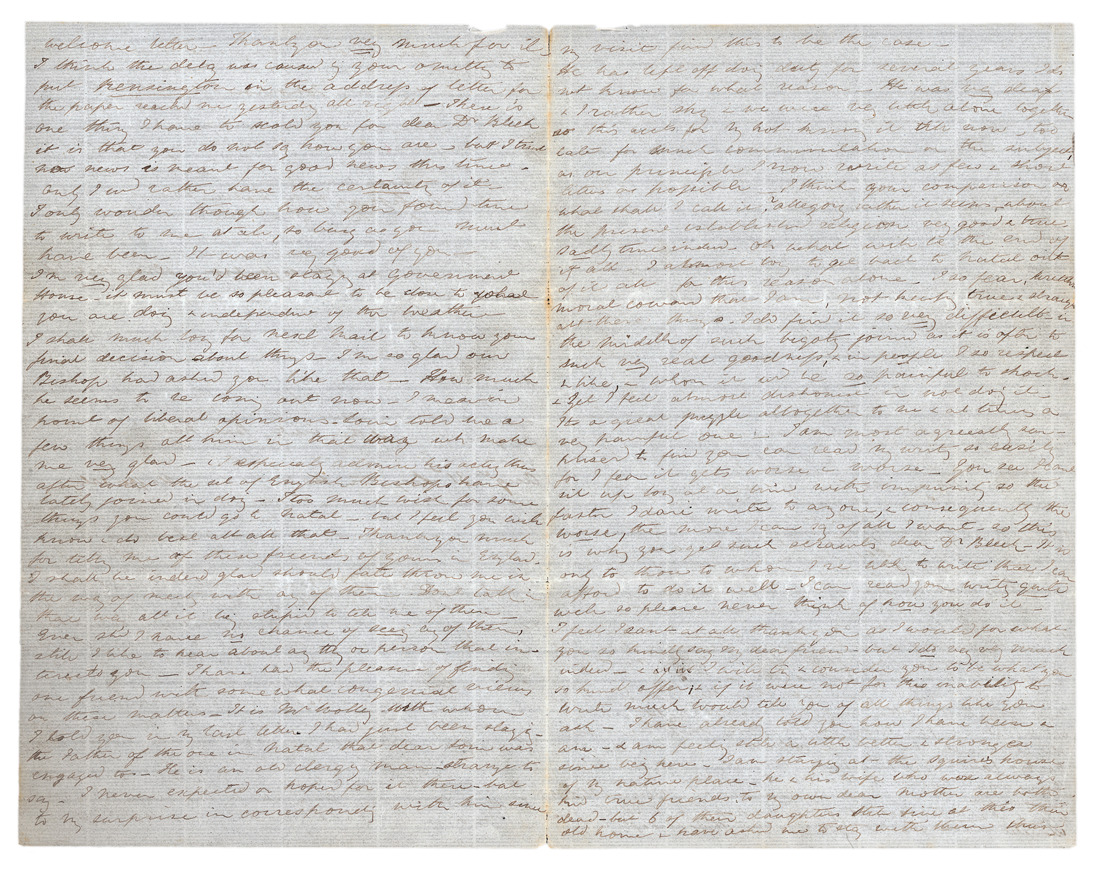 welcome letter - Thank you very much for it -
I think the delay was caused by your omitting to
put Kensington in the address of letter for
the paper reached me yesterday all right - There is
one thing I have to scold you for dear Dr Bleek
it is that you do not say how you are - but I trust
no news is meant for good news this time -
only I wd rather have the certainty of it -
I only wonder though how you found time
to write to me at all, so busy as you must
have been - It was very good of you -
I'm very glad you'd been staying at Government
House - it must be so pleasant to be close to what
you are doing & independent of the weather
I shall much long for next Mail to know your
final decision about things - I'm so glad our
Bishop had asked you like that - How much
he seems to be coming out now - I mean in
point of liberal opinions - told me a
few things abt him in that way wh make
me very glad - & I especially admire his acting thus
after what the set of English Bishops have
lately joined in doing - I too much wish for some
things you could go to Natal - but I feel you will
know & do best abt all that - Thank you much
for telling me of these friends of yours in England.
I shall be indeed glad should fate throw me in
the way of meeting with any of them - Don't talk in
that way abt it being stupid to tell me of them
Even shd I have no chance of seeing any of them,
still I like to hear about any thing or person that in-
terests you - I have had the pleasure of finding
one friend with somewhat congenial views
on these matters - It is Mr with whom
I told you in my last letter I had just been staying -
the Father of the one in Natal that dear was
engaged to - He is an old clergy man - strange to
say - I never expected or hoped for it there - but
to my surprise in corresponding with him since
my visit find this to be the case -
He has left off doing duty for several years I do
not know for what reason - He was very deaf
& I rather shy & we were very little alone together
so this accts for my not knowing it till now, too
late for much communication on the subject,
as on principle I now write as few & short
letters as possible - I think your comparison or
what shall I call it? allegory rather it seems, about
the present established religion very good & true
sadly true indeed Oh what will be the end of
it all I almost long to get back to Natal out
of it all for this reason alone - I so fear,
moral coward that I am, not being true & straight
abt these things I do find it so very difficult in
the midst of such bigotry joined as it is often to
such very real goodness, & in people I so respect
& like, & whom it wd be so painful to shock -
& yet I feel almost dishonest in not doing it -
Its a great puzzle altogether to me & at times a
very painful one - I am most agreeably sur-
prised to find you can read my writing so easily
for I fear it gets worse & worse - You see I cant
sit up long at a time with impunity so the
faster I dare write to anyone, & consequently the
worse, the more I can say of all I want - so this
is why you get such scrawls dear Dr Bleek - It is
only to those to whom I've little to write that I can
afford to do it well - I can read your writing quite
well so please never think of how you do it -
I feel I cant at all thank you as I would for what
you so kindly say my dear friend - but I do very very much
indeed - & I will & consider you to be what you
so kindly offer, & if it were not for this inability to
write much would tell you of all things like you
ask - I have already told you how I have been &
am - & am feeling still a little better & stronger
since being here - I am staying at the Squires house
of my native place - he & his wife who were always
kind true friends to my own dear Mother are both
dead - but 6 of their daughters still live at this their
old home & have asked me to stay with them